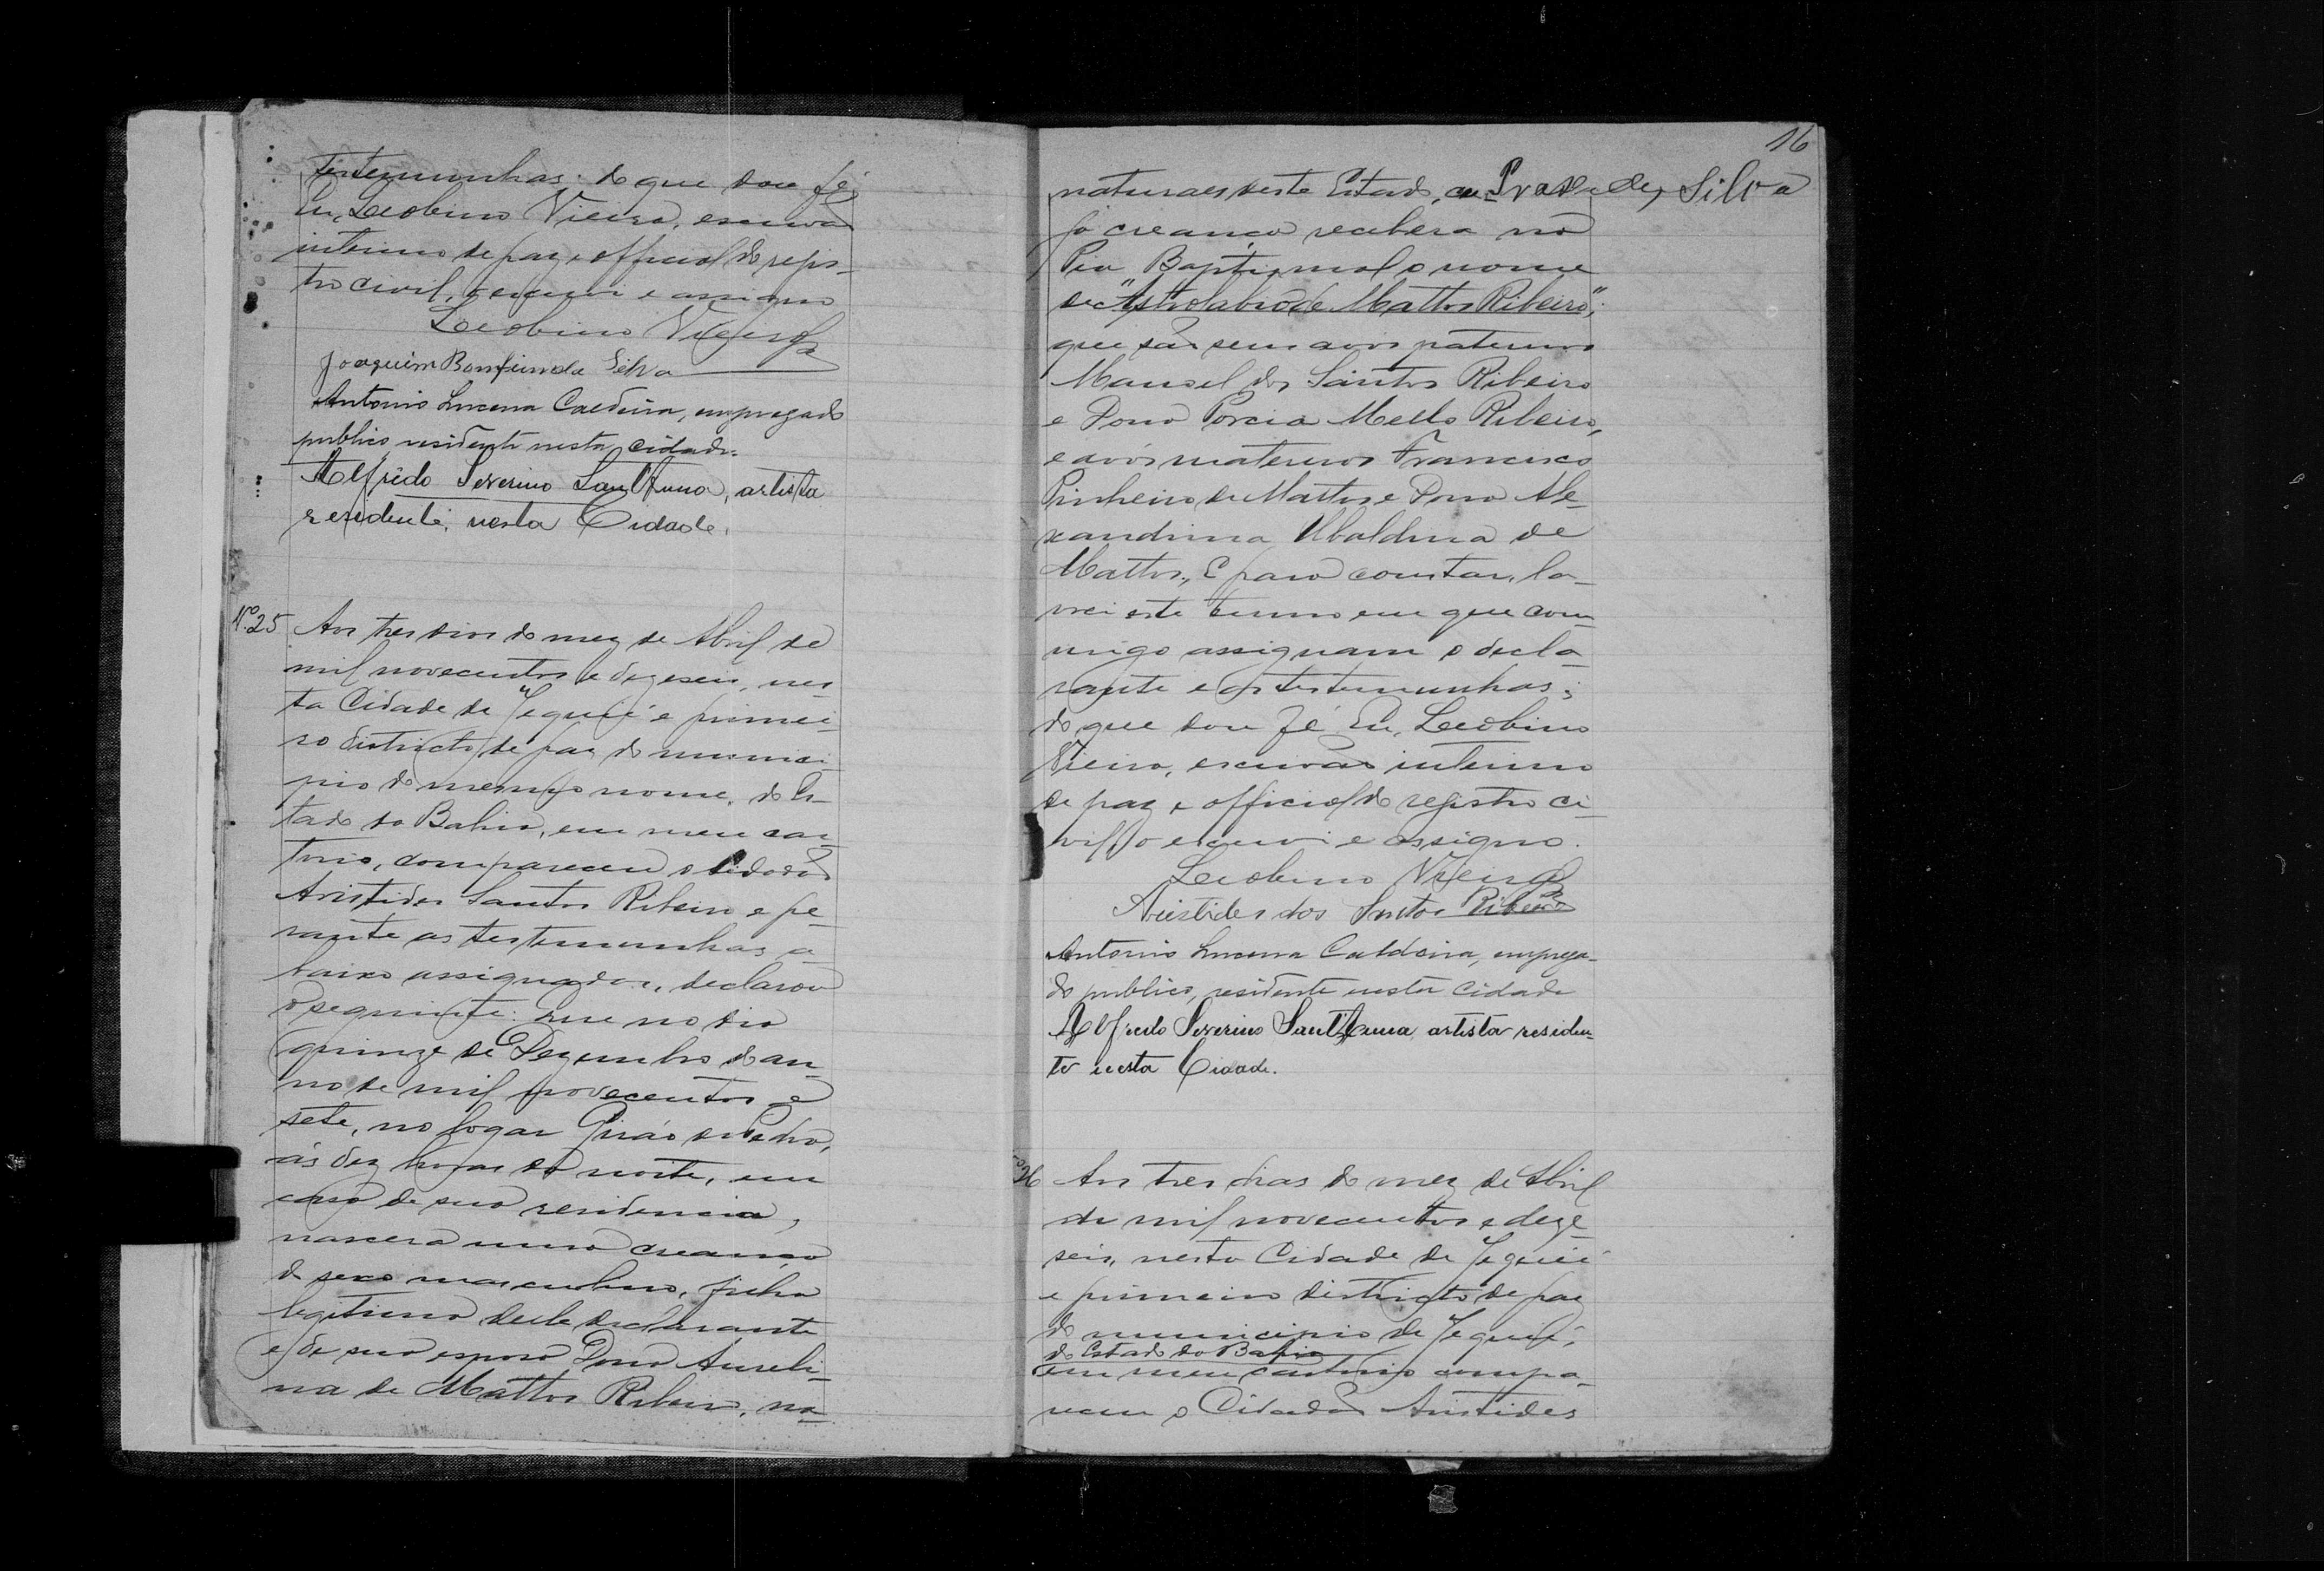 testemunhas; do que dou fé.
Eu, Leobino Vieira, escrivão
interino de paz e official do regis-
tro civil, o escrevi e assigno
Leobino Vieira
Joaquim Bomfim da Silva
Antonio Lucena Caldeira, empregado
publico residente nesta cidade.
Alfrêdo Severino Sant'Anna, artista
residente, nesta Cidade.
Nº 25 Aos tres dias do mez de Abril de
mil novecentos e dezeseis, nes-
ta Cidade de Jequié e primei-
ro districto de paz do munici-
pio do mesmo nome, do Es-
tado da Bahia, em meu car-
torio, compareceu o cidadão
Aristides Santos Ribeiro e pe-
rante as testemunhas a-
baixo assignadas, declarou
o seguinte: que no dia
quinze de Dezembro do an-
no de mil novecentos e
sete, no logar Giráo de Pedra,
ás dez horas da noite, em
casa de sua residencia,
nascera uma creança
do sexo masculino, filha
legitima delle declarante
e de sua esposa Dona Aureli-
na de Mattos Ribeiro, na-
16
naturaes deste Estado, cu Prasede, Silva
ja creança recebera na
Pia Baptismal o nome
de "Astrolabio de Mattos Ribeiro";
que são seus avós paternos
Manoel dos Santos Ribeiro
e Dona Porcia Mello Ribeiro,
e avós maternos Francisco
Pinheiro de Mattos e Dona Ale-
xandrina Ubaldina de
Mattos. E para constar, la-
vrei este termo em que com-
migo assignam o decla-
rante e as testemunhas;
do que dou fé. Eu, Leobino
Vieira, escrivão interino
de paz e official do registro ci-
vil, o escrevi e assigno.
Leobino Vieira
Aristides dos Santos Ribeiro
Antonio Lucena Caldeira, emprega-
do publico, residente nesta cidade
Alfredo Severino Sant'Anna artista residen-
te nesta Cidade.
Nº 26 Aos tres dias do mez de Abril
de mil novecentos e deze-
seis, nesta Cidade de Jequié
e primeiro districto de paz
do municipio de Jequié,
do Estado da Bahia
em meu cartorio compa-
receu o Cidadão Aristides